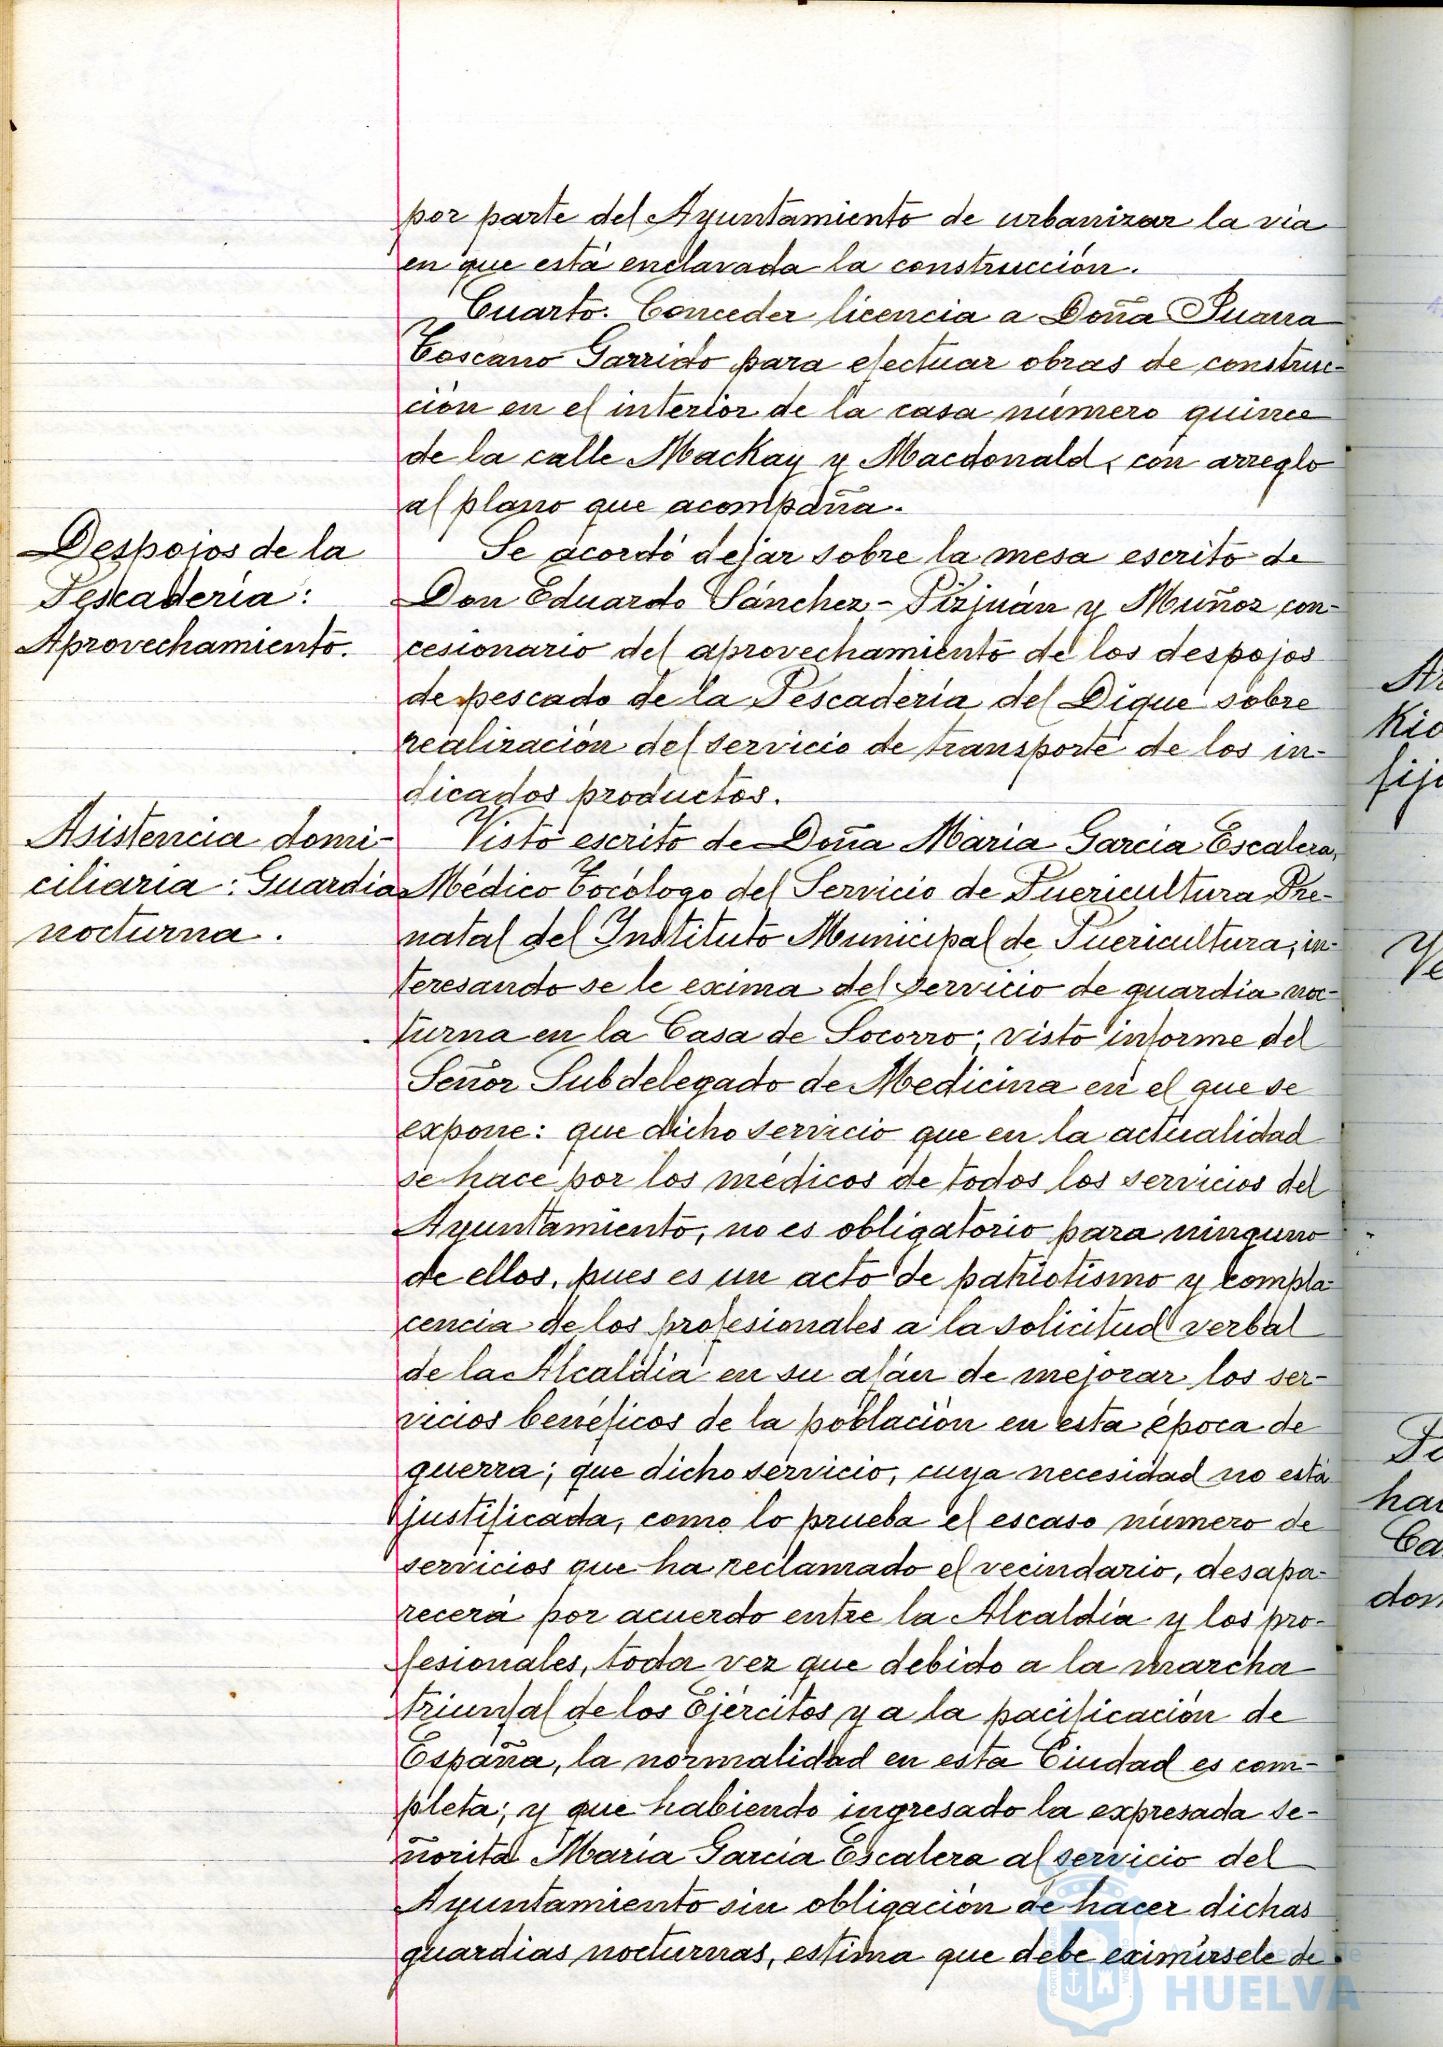 por parte del Ayuntamiento de urbanizar la vía
en que está enclavada la construcción.
Cuarto. Conceder licencia a Doña Juana
Toscano Garrido para efectuar obras de construc-
ción en el interior de la casa número quince
de la calle Mackay y Macdonald, con arreglo
al plano que acompaña.
Despojos de la
Pescadería:
Aprovechamiento.
Se acordó dejar sobre la mesa escrito de
Don Eduardo Sánchez-Pizjuán y Muñoz con-
cesionario del aprovechamiento de los despojos
de pescado de la Pescadería del Dique sobre
realización del servicio de transporte de los in-
dicados productos.
Asistencia domi-
ciliaria: Guardia
nocturna.
Visto escrito de Doña María García Escalera,
Médico Tocólogo del Servicio de Puericultura Pre-
natal del Instituto Municipal de Puericultura, in-
teresando se le exima del servicio de guardia noc-
turna en la Casa de Socorro; visto informe del
Señor Subdelegado de Medicina en el que se
expone: que dicho servicio que en la actualidad
se hace por los médicos de todos los servicios del
Ayuntamiento, no es obligatorio para ninguno
de ellos, pues es un acto de patriotismo y compla-
cencia de los profesionales a la solicitud verbal
de la Alcaldía en su afán de mejorar los ser-
vicios benéficos de la población en esta época de
guerra; que dicho servicio, cuya necesidad no está
justificada, como lo prueba el escaso número de
servicios que ha reclamado el vecindario, desapa-
recerá por acuerdo entre la Alcaldía y los pro-
fesionales, toda vez que debido a la marcha
triunfal de los Ejércitos y a la pacificación de
España, la normalidad en esta Ciudad es com-
pleta; y que habiendo ingresado la expresada se-
ñorita María García Escalera al servicio del
Ayuntamiento sin obligación de hacer dichas
guardias nocturnas, estima que debe eximírsele de
HUELVA